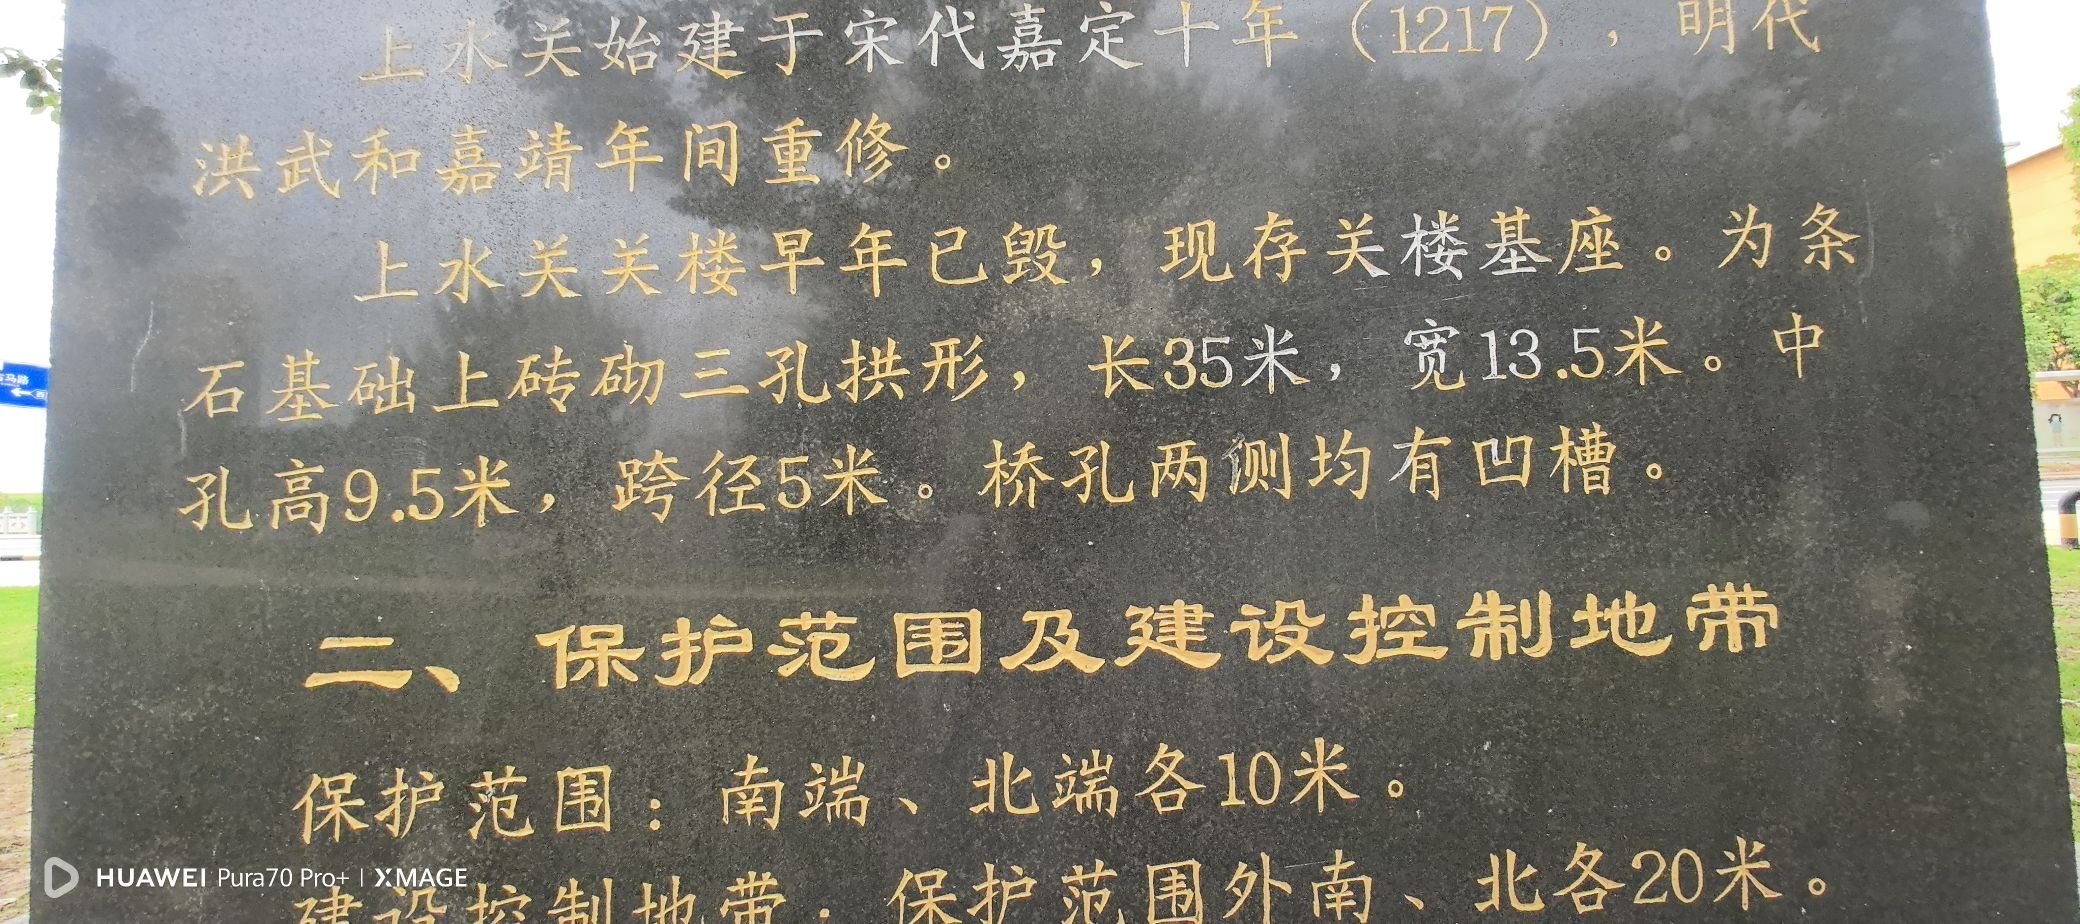 上水关始建于宋代嘉定十年（1217），明代
洪武和嘉靖年间重修。
上水关关楼早年已毁，现存关楼基座。为条
石基础上砖砌三孔拱形，长35米，宽13.5米。中
孔高9.5米，跨径5米。桥孔两侧均有凹槽。
二、保护范围及建设控制地带
保护范围：南端、北端各10米。
建设控制地带：保护范围外南、北各20米。
HUAWEI Pura70 Pro+ | XMAGE